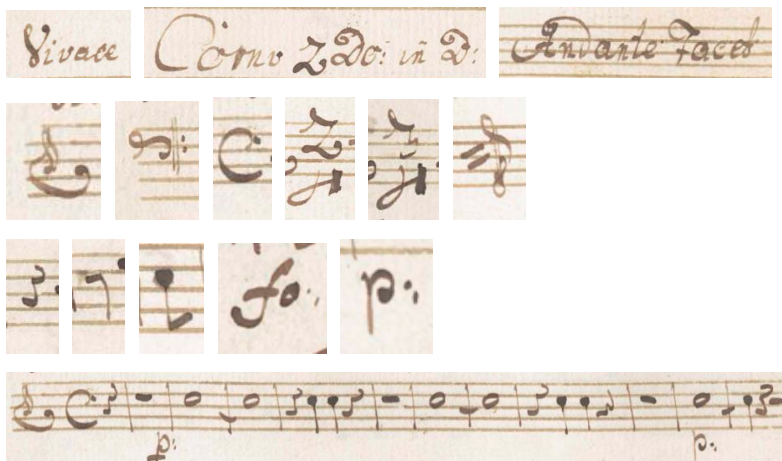 Vivace Corno 2do: in D: Andante Tacet
2. 2.
4 4
fo: p:
p: p: